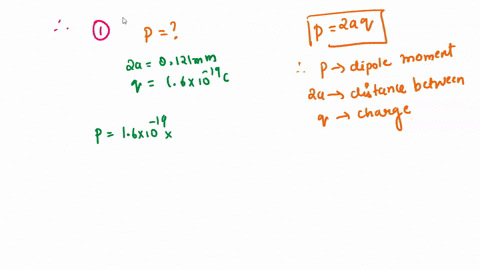 ∴ ① P = ?
2a = 0.121mm
q = 1.6×10⁻¹⁹ C
P = 1.6×10⁻¹⁹ ×
P = 2aq
∴ P → dipole moment
2a → distance between
q → charge